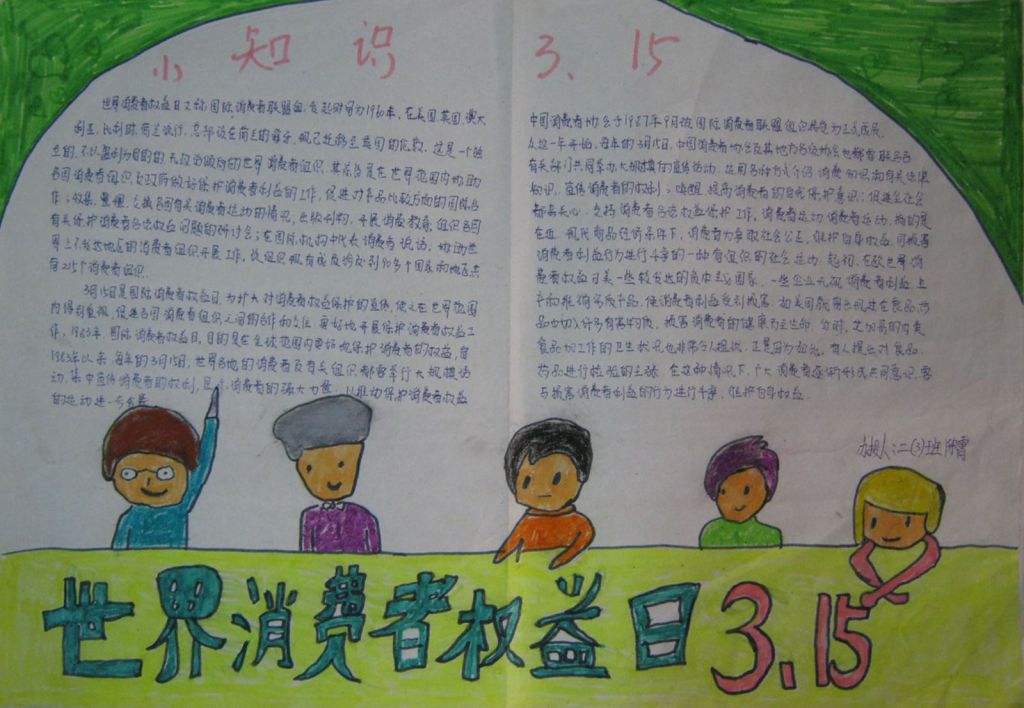 小知识 3.15
世界消费者权益日又称国际消费者联盟日,发起时间为1960年,在美国、英国、澳大
利亚、比利时、荷兰发行,总部设在荷兰的海牙,现已迁移至英国的伦敦。这是一个独
立的、不以盈利为目的的、无政治倾向的世界消费者组织,其宗旨是在世界范围内协助
各国消费者组织及政府做好保护消费者利益的工作,促进对产品比较方面的国际合
作;收集、整理、交换各国有关消费者运动的情况,出版刊物,开展消费教育;组织各国
有关保护消费者各该权益问题的研讨会;在国际机构中代表消费者说话,协助世
界上不发达地区的消费者组织开展工作,
有215个消费者组织。
3月15日是国际消费者权益日,为扩大对消费者权益保护的宣传,使之在世界范围
内得到重视,促进各国消费者组织之间的合作和交往,更好地开展保护消费者权益工
作,1983年,国际消费者权益日,目的是在全球范围内更好地保护消费者的权益,自
1983年以来,每年的3月15日,世界各地的消费者及有关组织都要举行大规模活
动,集中宣传消费者的权利,显示消费者的强大力量,以推动保护消费者权益
的运动进一步发展
中国消费者协会于1987年9月被国际消费者联盟组织接受为正式成员。
从这一年开始,每年的3月15日,中国消费者协会及其地方各级协会也都要联合各
有关部门共同举办大规模的宣传活动,运用各种方式介绍消费知识和有关法律
知识,宣传消费者的权利;唤醒、提高消费者的自我保护意识;促进全社会
都来关心、支持消费者合法权益保护工作,消费者运动
在近、现代商品经济条件下,消费者为争取社会公正、维护自身权益,同损害
消费者利益行为进行斗争的一种有组织的社会运动。
一些发达的资本主义国家,一些企业无视消费者利益,生
产和推销劣质产品,使消费者利益受到损害,如美国就曾出现过在食品、药
品中加入许多有害物质,损害消费者的健康乃至生命。当时,芝加哥的肉类
食品加工作的卫生状况也非常令人担忧。正是因为如此,有人提出对食品、
药品进行检验的主张,在这种情况下,广大消费者逐渐形成共同意识,要
与损害消费者利益的行为进行斗争,维护自身权益。
办报人:二(3)班 陈霄
世界消费者权益日3.15